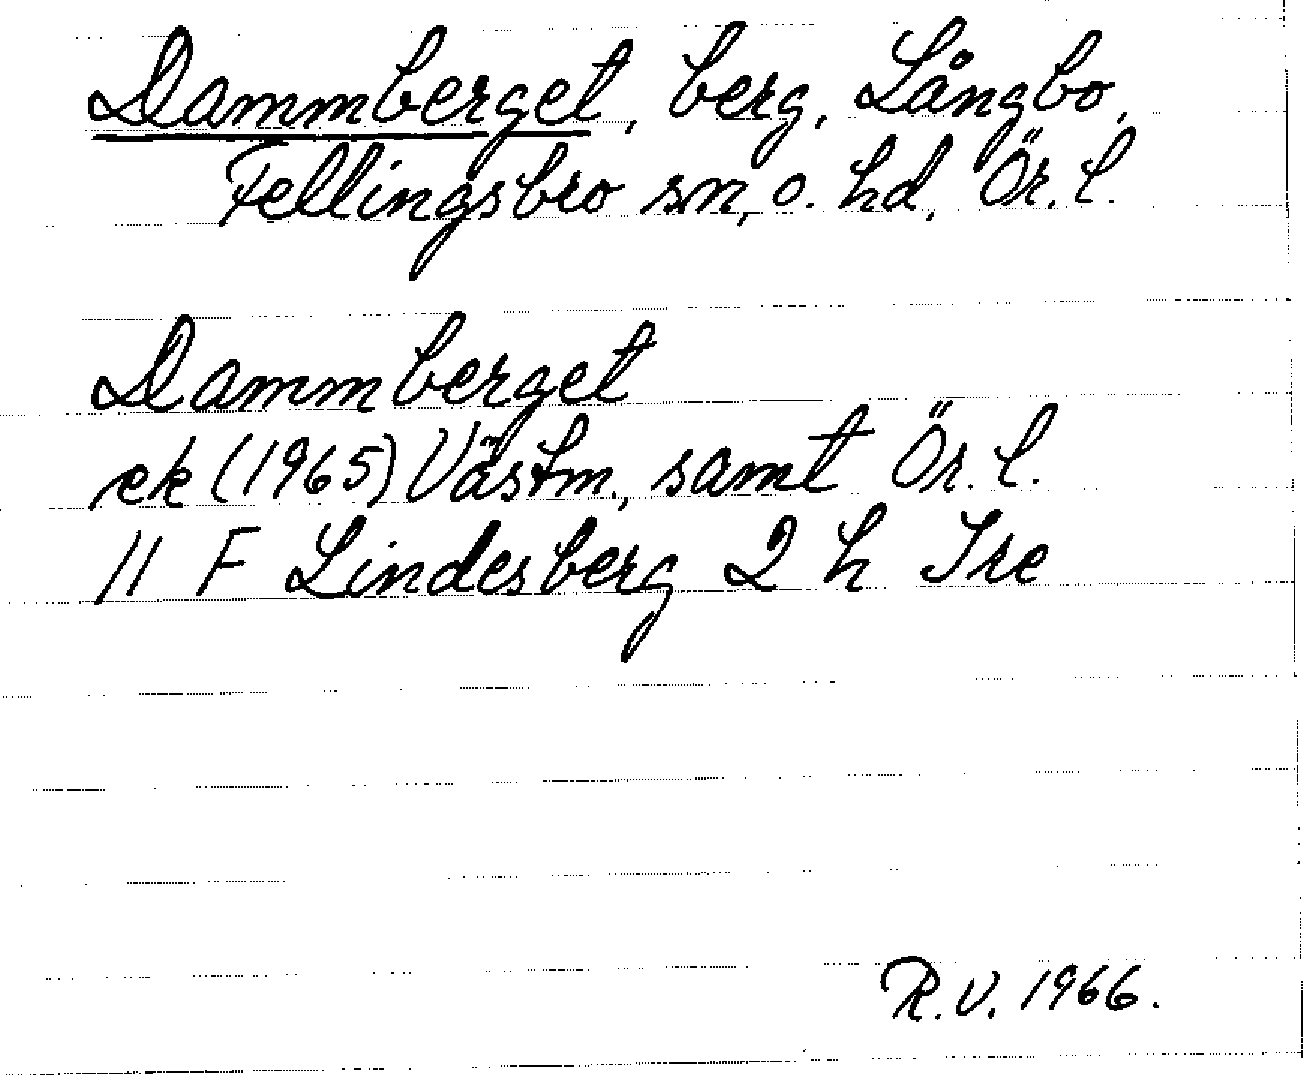 Dammberget, berg, Långbo,
Fellingsbro sn, o. hd, Ör. l.
Dammberget
ek (1965) Västm., samt Ör. l.
11 F Lindesberg 2 h Tre
R.V. 1966.